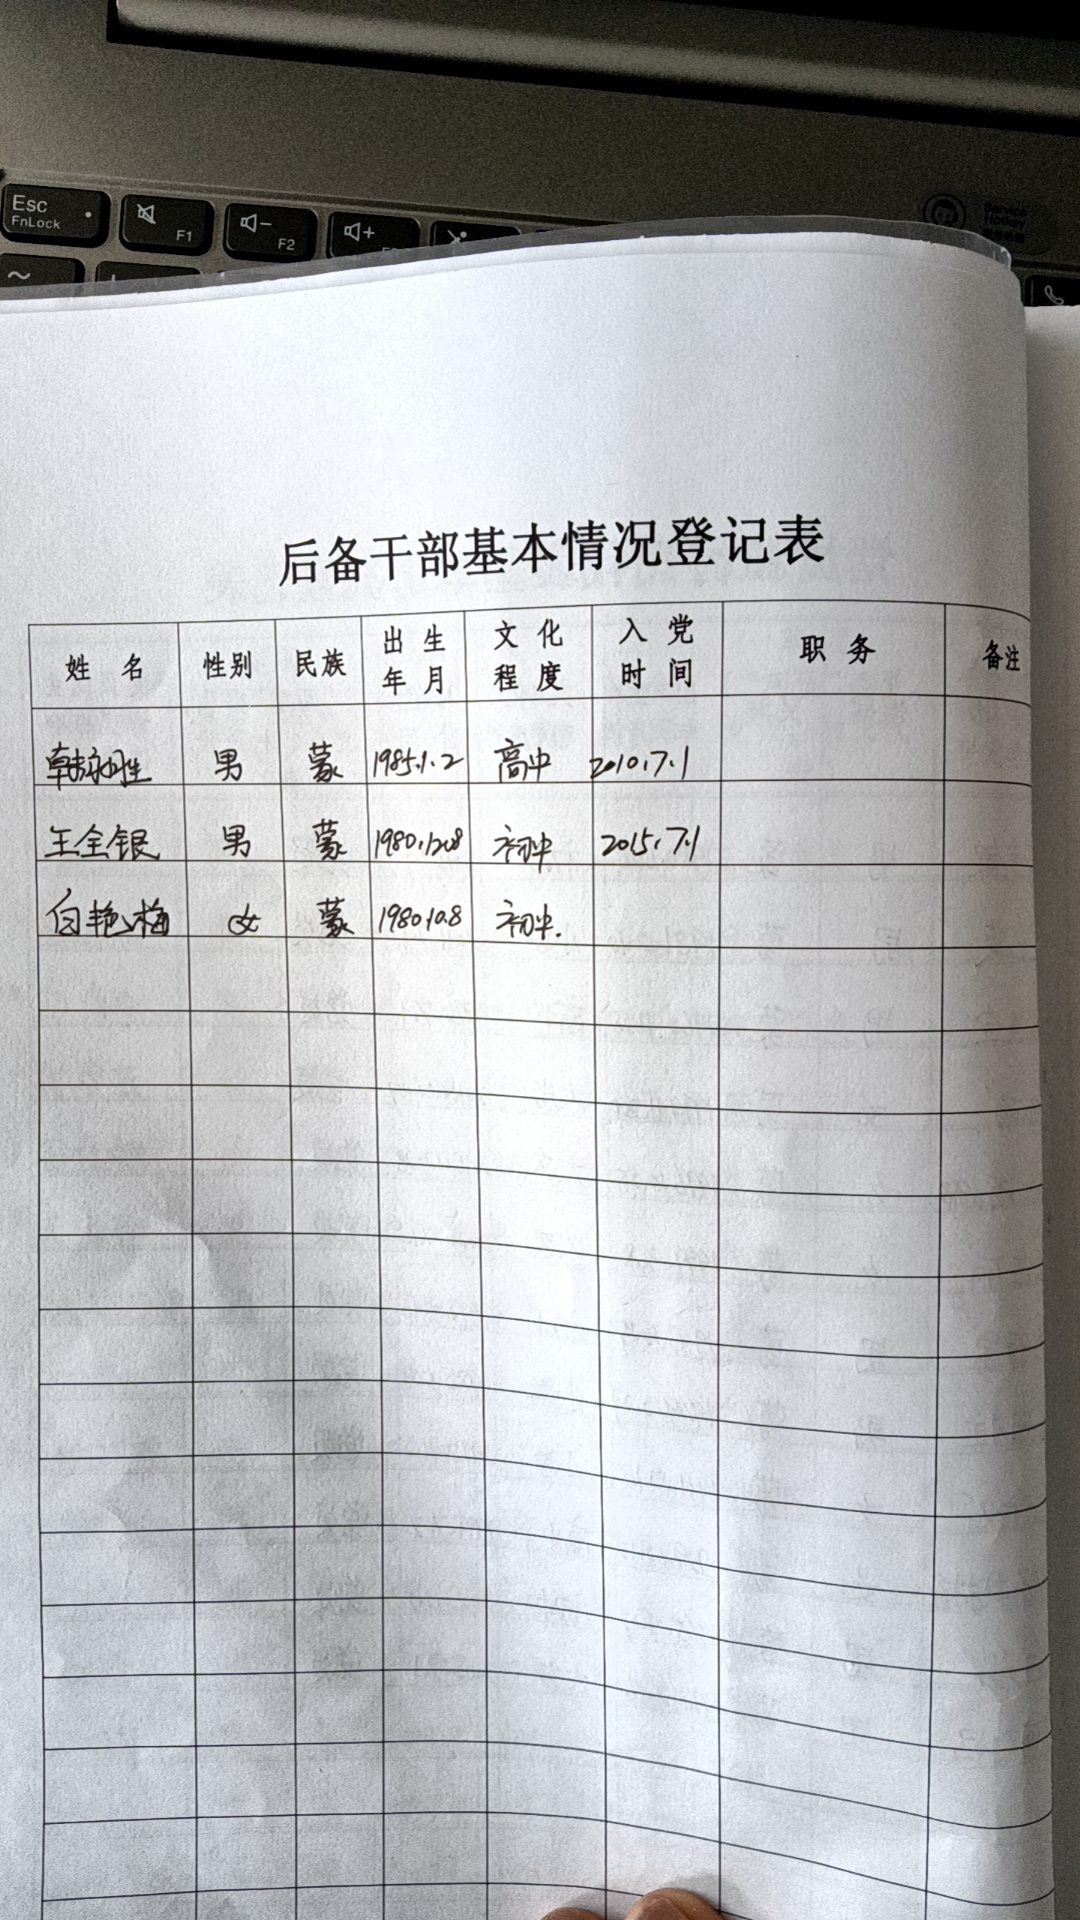 Esc
FnLock
F1
F2
Service
Hotkey
后备干部基本情况登记表
姓 名 性别 民族 出生年月 文化程度 入党时间 职务 备注
韩永胜 男 蒙 1985.1.2 高中 2010.7.1
王全银 男 蒙 1980.12.8 初中 2015.7.1
白艳梅 女 蒙 1980.10.8 初中.